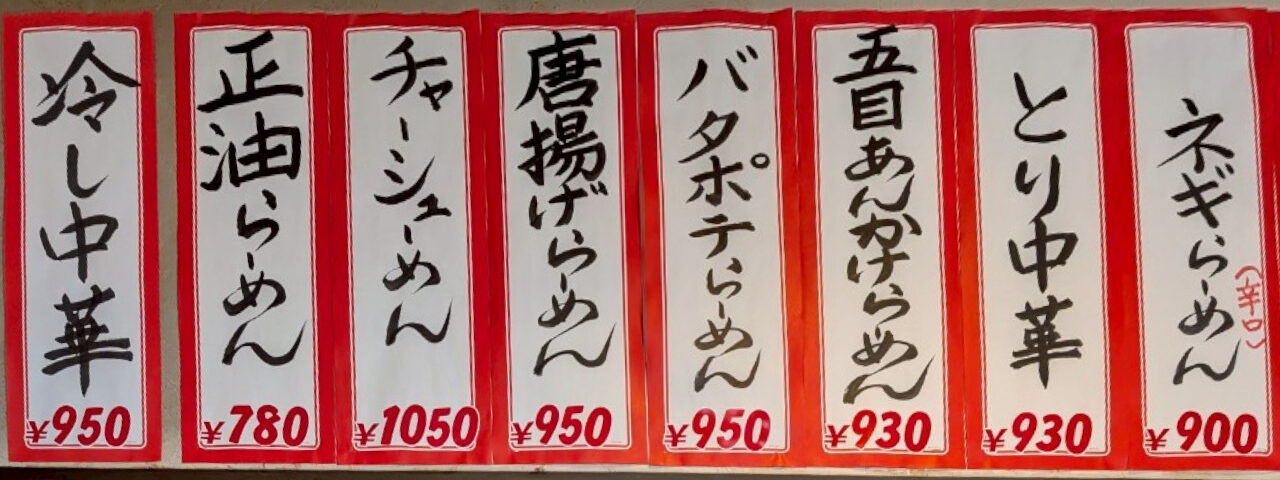 冷し中華
¥950
正油らーめん
¥780
チャーシューめん
¥1050
唐揚げらーめん
¥950
バタポテらーめん
¥950
五目あんかけらーめん
¥930
とり中華
¥930
ネギらーめん
(辛口)
¥900